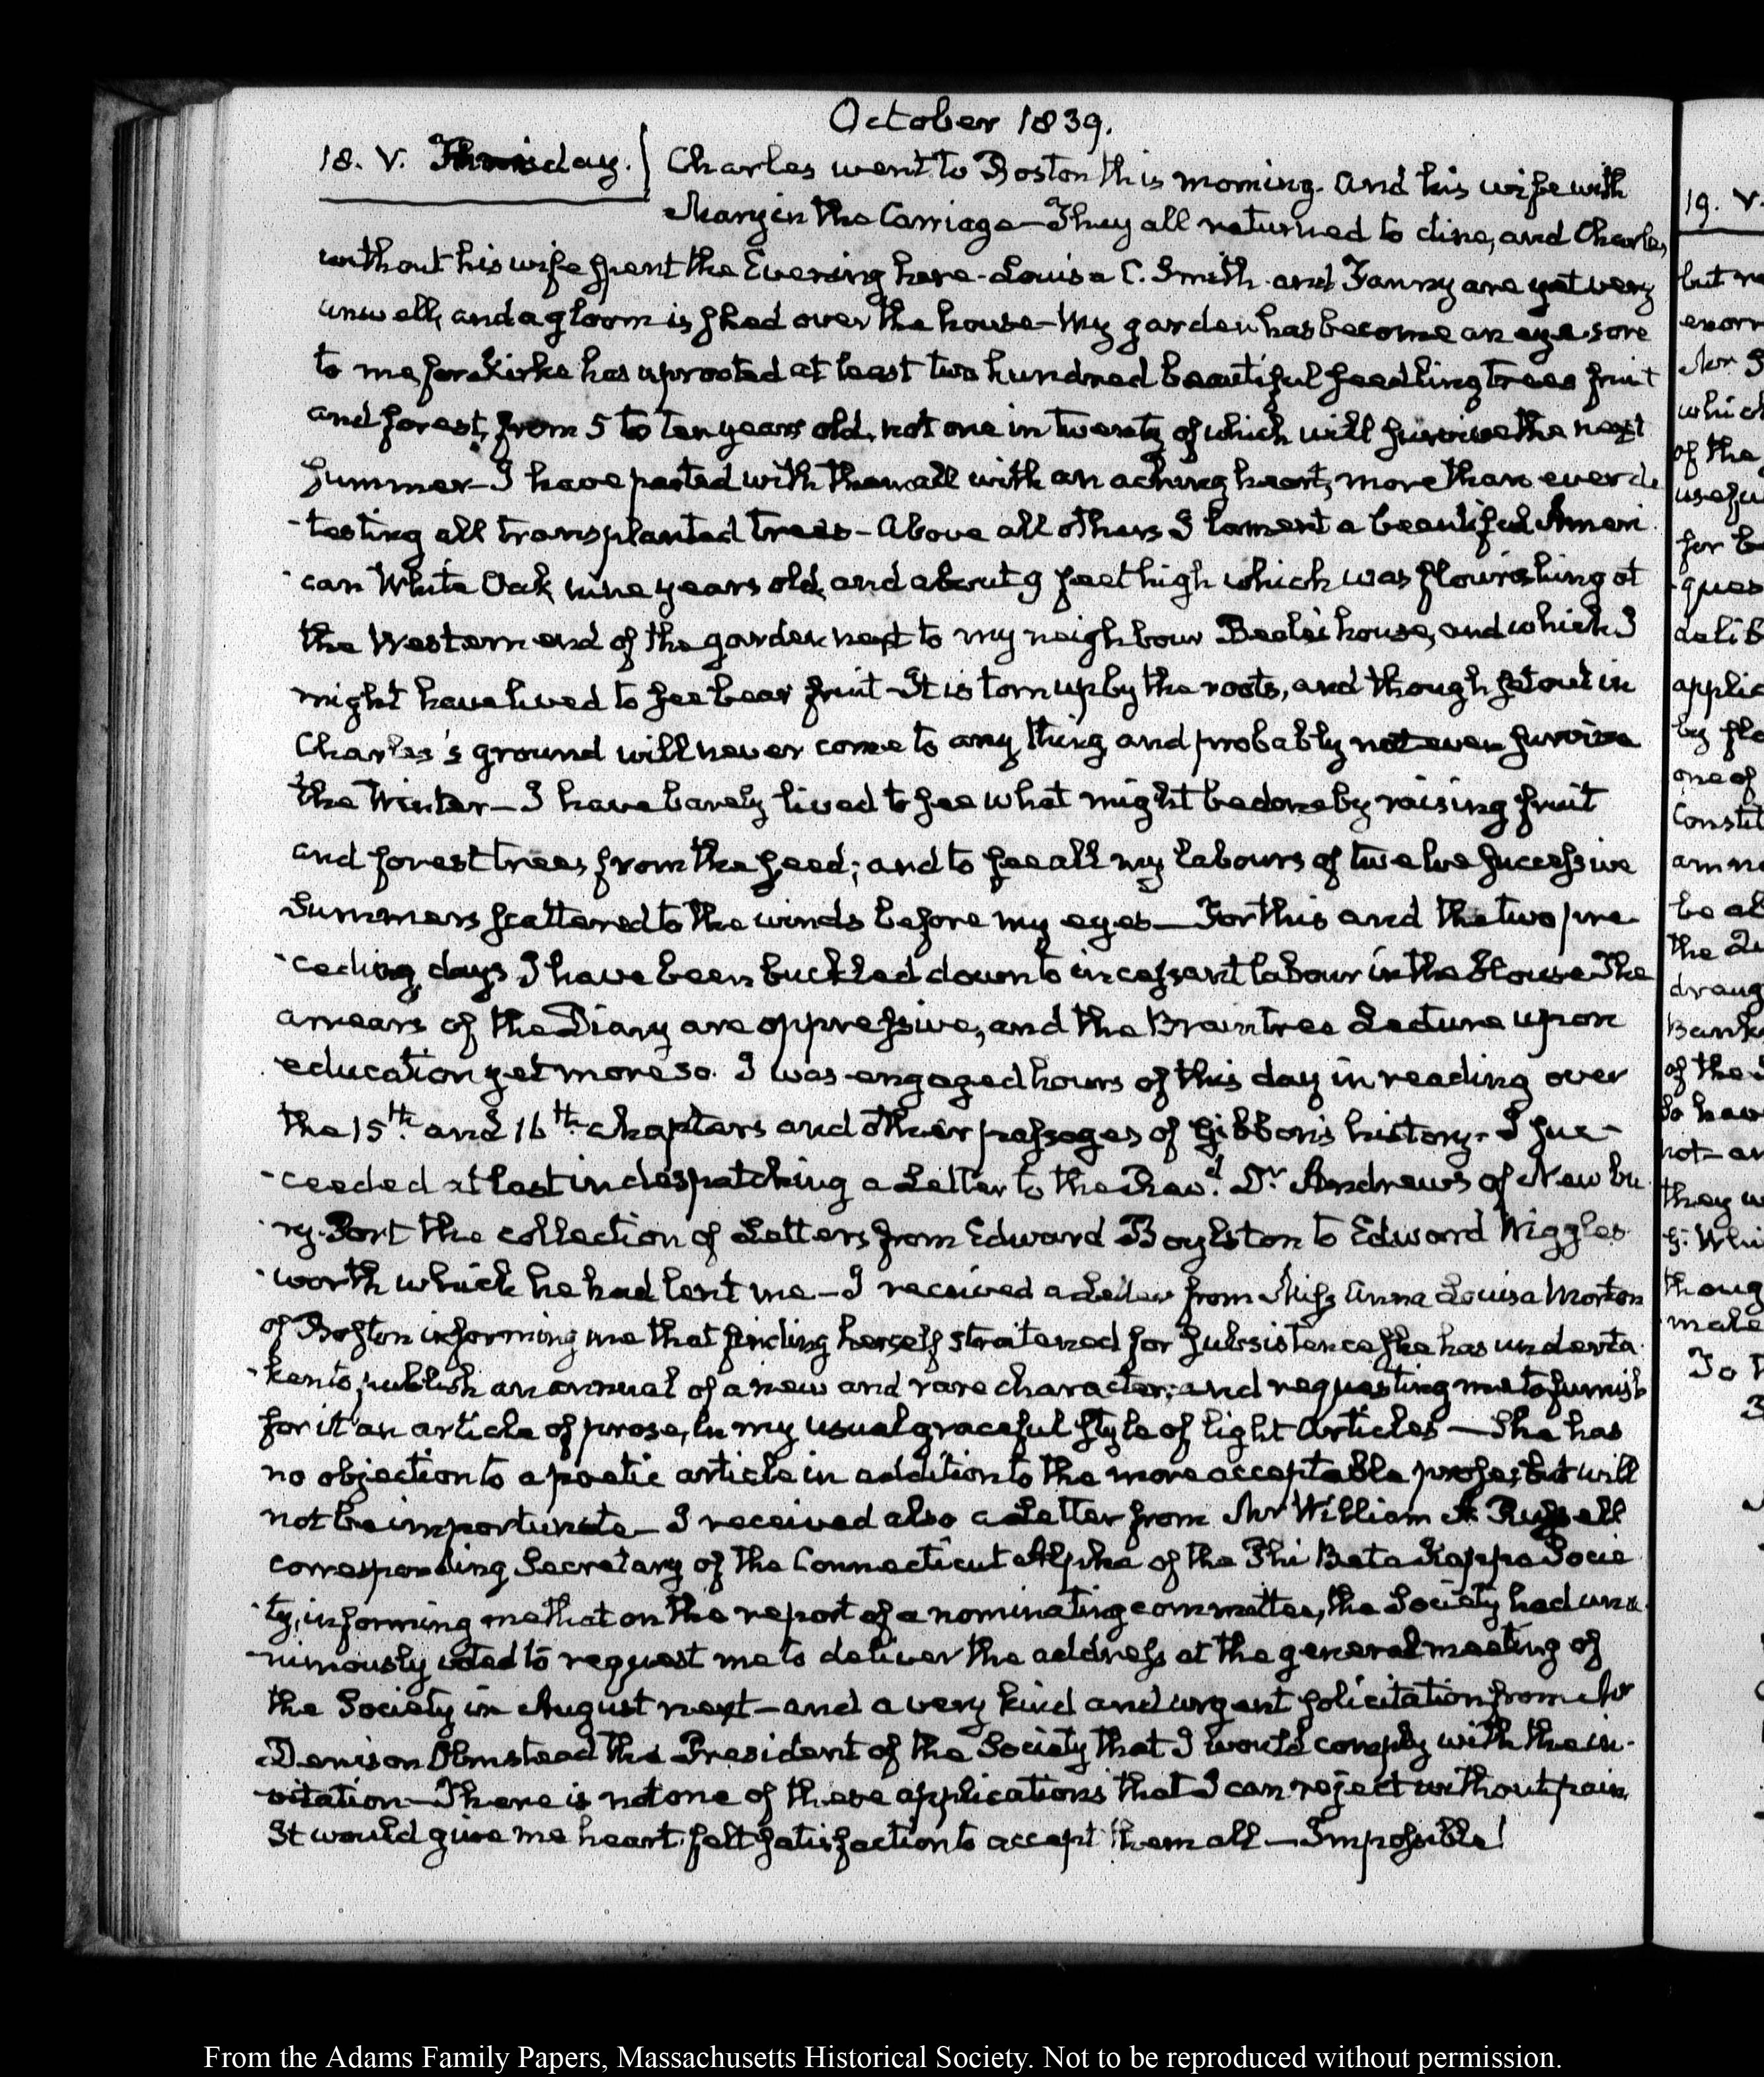 October 1839.
18. V. Thursday. Charles went to Boston this morning. and his wife with
Mary in the Carriage — They all returned to dine, and Charles,
without his wife spent the Evening here. Louisa C. Smith and Fanny are yet very
unwell, and a gloom is shed over the house — My garden has become an eye sore
to me, for Kirke has uprooted at least two hundred beautiful seedling trees fruit
and forest, from 5 to ten years old, not one in twenty of which will survive the next
summer — I have parted with them all with an aching heart, more than ever de
-testing all transplanted trees — Above all others I lament a beautiful Ameri
-can White Oak, nine years old, and about 9 feet high which was flourishing at
the Western end of the garden next to my neighbour Beale's house, and which I
might have lived to see bear fruit — It is torn up by the roots, and though set out in
Charles's ground will never come to any thing and probably not even survive
the Winter — I have barely lived to see what might be done by raising fruit
and forest trees from the seed; and to see all my labours of twelve successive
Summers scattered to the winds before my eyes — For this and the two pre
-ceding days I have been buckled down to incessant labour in the House The
arrears of the Diary are oppressive, and the Braintree Lecture upon
education yet more so. I was engaged hours of this day in reading over
the 15th. and 16th. chapters and other passages of Gibbon's history. I suc-
-ceeded at last in despatching a Letter to the Revd. Dr Andrews of Newbu
-ry-Port the collection of Letters from Edward Boylston to Edward Wiggles
-worth which he had lent me — I received a Letter from Miss Anna Louisa Morton
of Boston informing me that finding herself straitened for subsistence she has underta
-ken to publish an annual of a new and rare character; and requesting me to furnish
for it an article of prose, in my usual graceful style of light Articles — She has
no objection to a poetic article in addition to the more acceptable prose; but will
not be importunate — I received also a Letter from Mr William A. Russell
corresponding Secretary of the Connecticut Alpha of the Phi Beta Kappa Socie
-ty, informing me that on the report of a nominating committee, the Society had una
-nimously voted to request me to deliver the address at the general meeting of
the Society in August next — and a very kind and urgent solicitation from Mr
Denison Olmstead the President of the Society that I would comply with the in-
-vitation — There is not one of these applications that I can reject without pain,
It would give me heart-felt satisfaction to accept them all — Impossible!
19. V.
but
of the
for
ques
applic
by
one of
be ab
the
of the
they
thoug
make
To
From the Adams Family Papers, Massachusetts Historical Society. Not to be reproduced without permission.